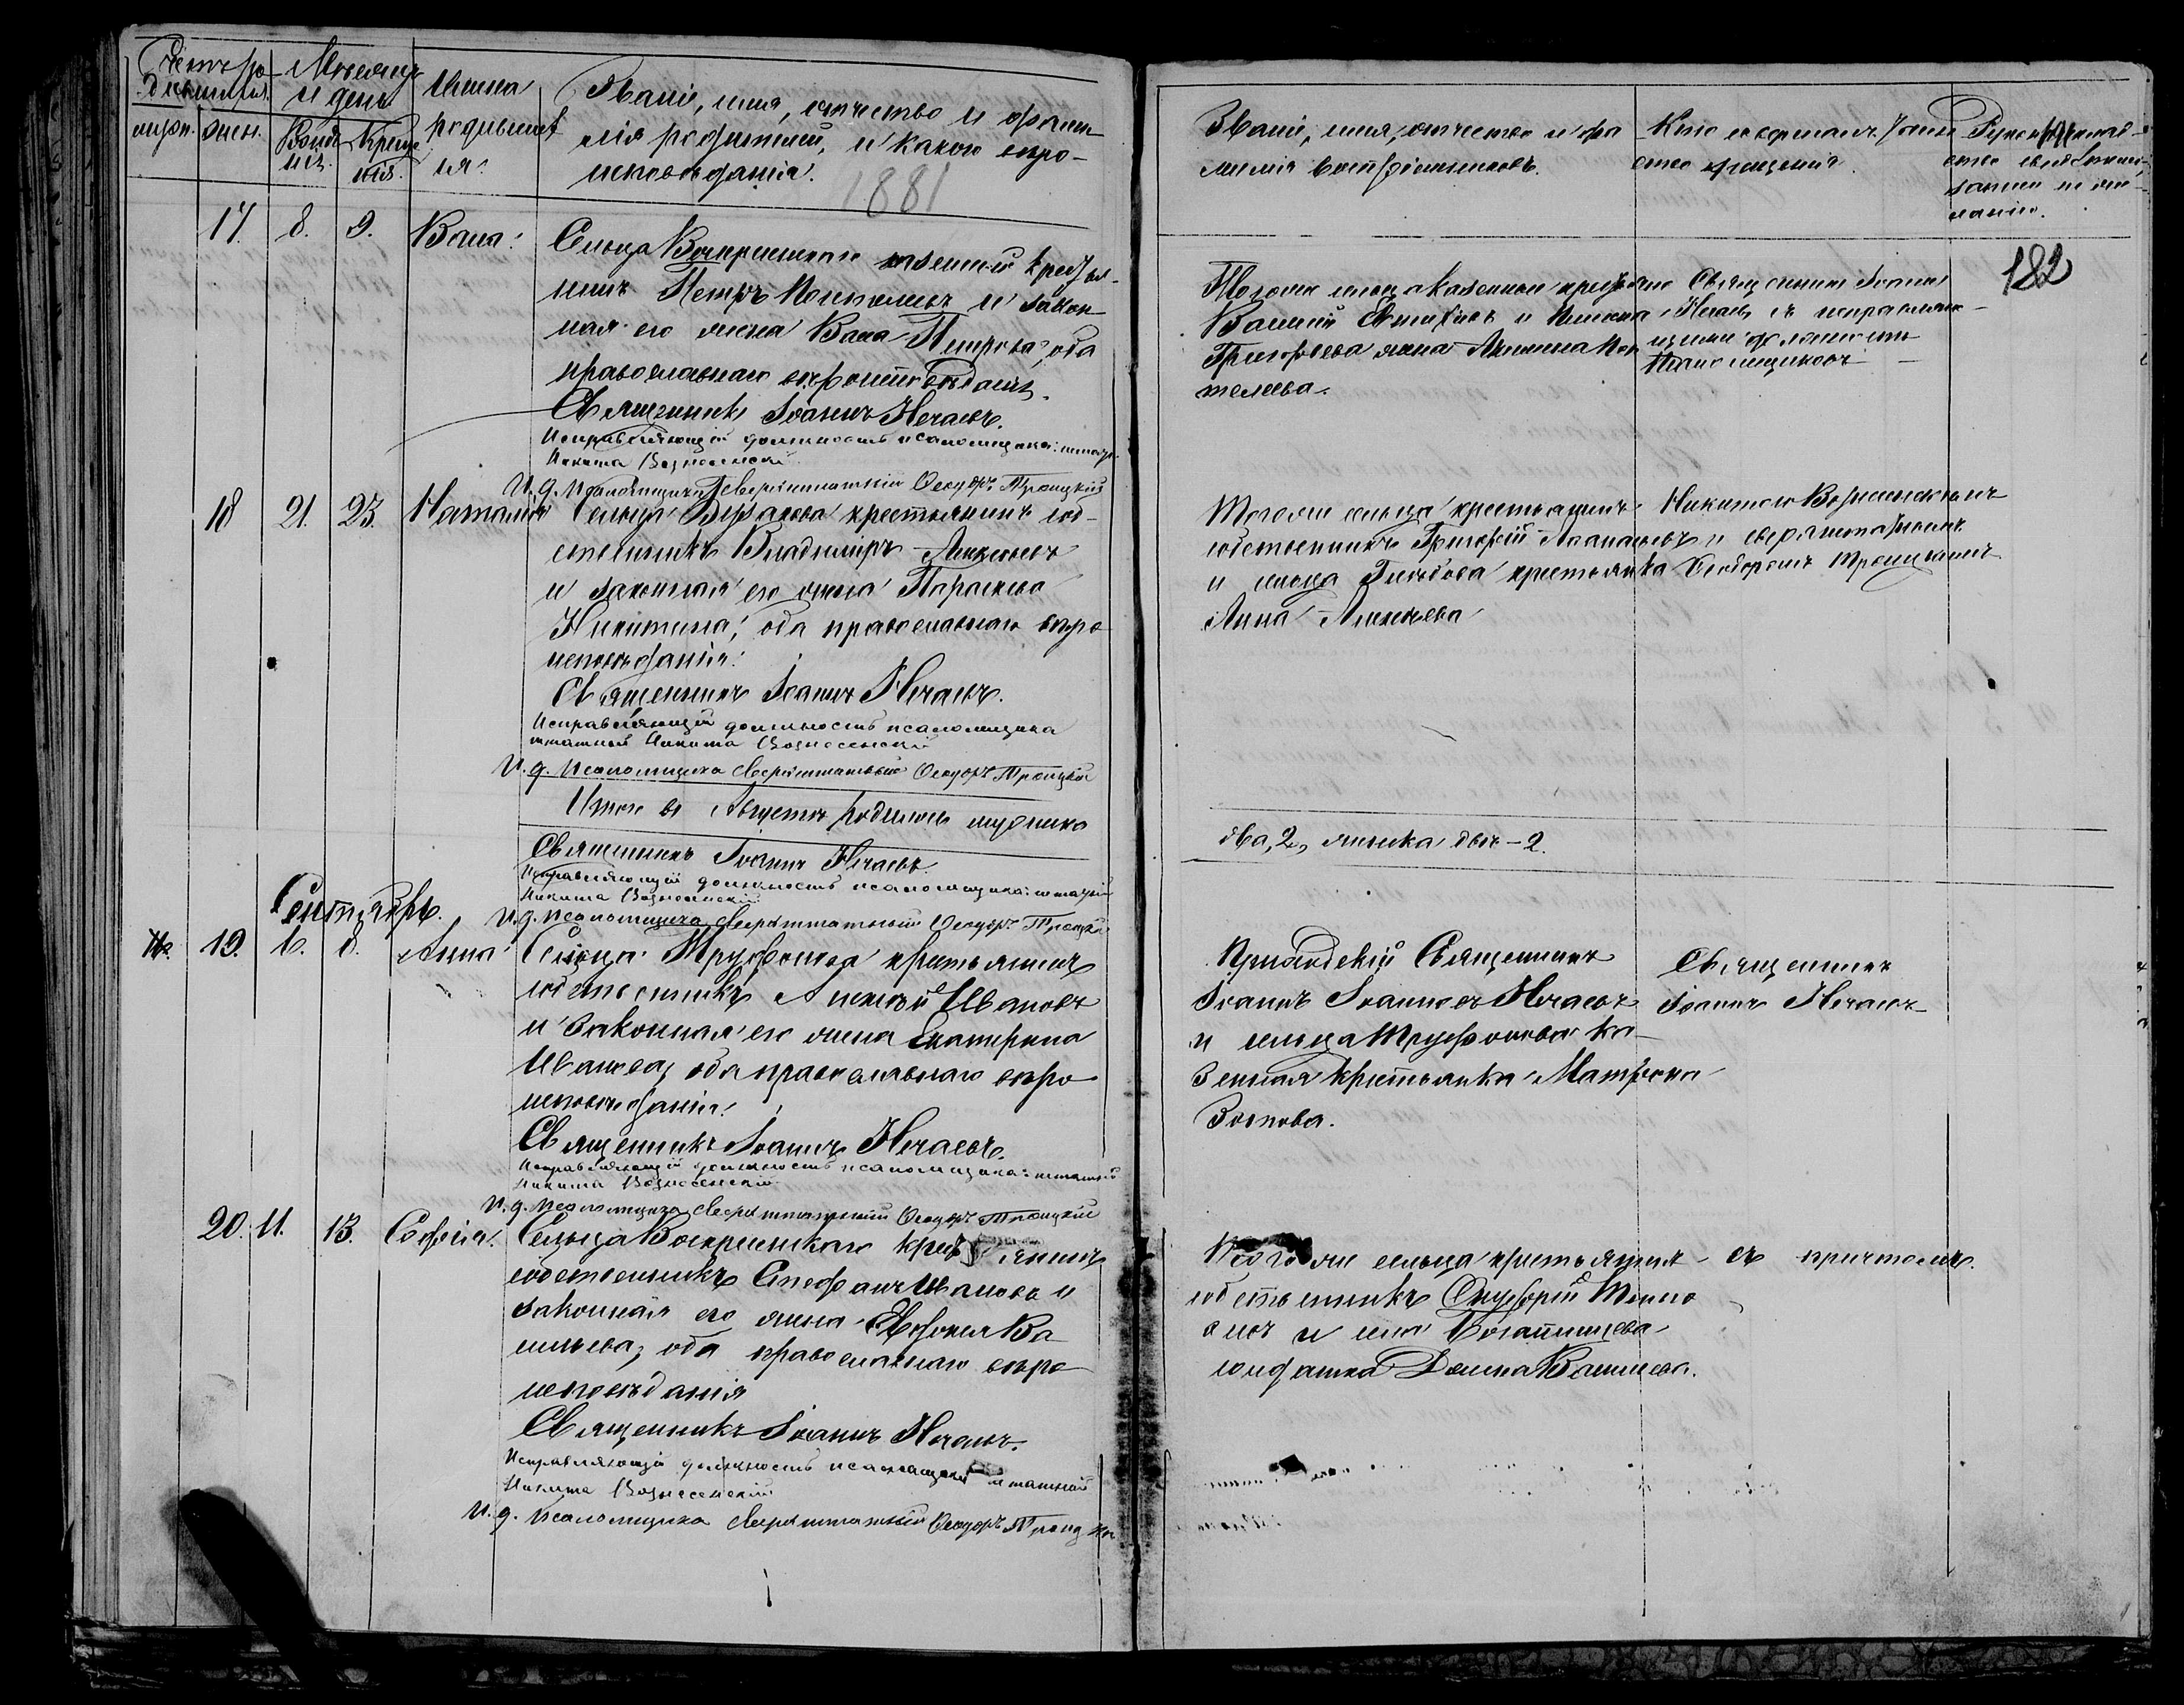 Счетъ ро-
дившихся.
Мѣсяцъ
и день
Имена
родивших
ся.
Званіе, имя, отчество и фами-
лія родителей, и какого вѣро-
исповѣданія.
1881
муж. жен.
Рожде
нія. Креще
нія.
17. 8. 9. Васса.
Сельца Воскресенскаго казенный кресть-
янинъ Петръ и закон-
ная его жена Васса Петрова, оба
православнаго вѣроисповѣданія.
Священникъ Іоаннъ Нечаевъ.
Исправляющій должность псаломщика: штатн.
Никита Вознесенскій
И. д. псаломщика сверхштатный Ѳеодоръ Троицкій
18 21. 23. Наталія
Сельца крестьянинъ соб-
ственникъ Владиміръ Алексѣевъ
и законная его жена Параскева
Никитина, оба православнаго вѣро
исповѣданія.
Священникъ Іоаннъ Нечаевъ.
Исправляющій должность псаломщика
штатный Никита Вознесенскій
И. д. псаломщика сверхштатный Ѳеодоръ Троицкій
Итого въ Августѣ родилось мужеска
Священникъ Іоаннъ Нечаевъ.
Исправляющій должность псаломщика: штатный
Никита Вознесенскій
И. д. псаломщика сверхштатный Ѳеодоръ Троицкій
Сентябрь.
19. 6. 8. Анна
Сельца Труфонова крестьянинъ
собственникъ Алексѣй Ивановъ
и законная его жена Екатерина
Иванова, оба православнаго вѣро
исповѣданія.
Священникъ Іоаннъ Нечаевъ.
Исправляющій должность псаломщика: штатный
Никита Вознесенскій
И. д. псаломщика сверхштатный Ѳеодоръ Троицкій
20. 11. 13. Софія.
Сельца Воскресенскаго крестьянинъ
собственникъ Стефанъ Ивановъ и
законная его жена Ва
сильева, оба православнаго вѣро
исповѣданія
Священникъ Іоаннъ Нечаевъ.
Исправляющій должность псаломщика штатный
Никита Вознесенскій
И. д. псаломщика сверхштатный Ѳеодоръ Троицкій
Званіе, имя, отчество и фа
милія воспріемниковъ.
Кто совершалъ таин
ство крещенія.
Рукоприклад-
ство свидѣтелей
записи по же-
ланію.
182
Тогоже сельца казенный крестьянинъ
Василій и
Григорьева жена Акилина Пан
телеева.
Священникъ Іоаннъ
Нечаевъ съ исправляю-
щими должность
псаломщиковъ
Тогоже сельца крестьянинъ
собственникъ Григорій
и сельца Глѣбова крестьянка
Анна Алексѣева
Никитою Вознесенскимъ
и сверхштатнымъ
Ѳеодоромъ Троицкимъ
два, 2, женска двѣ - 2.
Приходскій Священникъ
Іоаннъ Іоанновъ Нечаевъ
и сельца Труфонова ка-
зенная крестьянка Матрона
Зотова.
Священникъ
Іоаннъ Нечаевъ
Тогоже сельца крестьянинъ
собственникъ
и села
солдатка Домна Васильева.
съ причтомъ.